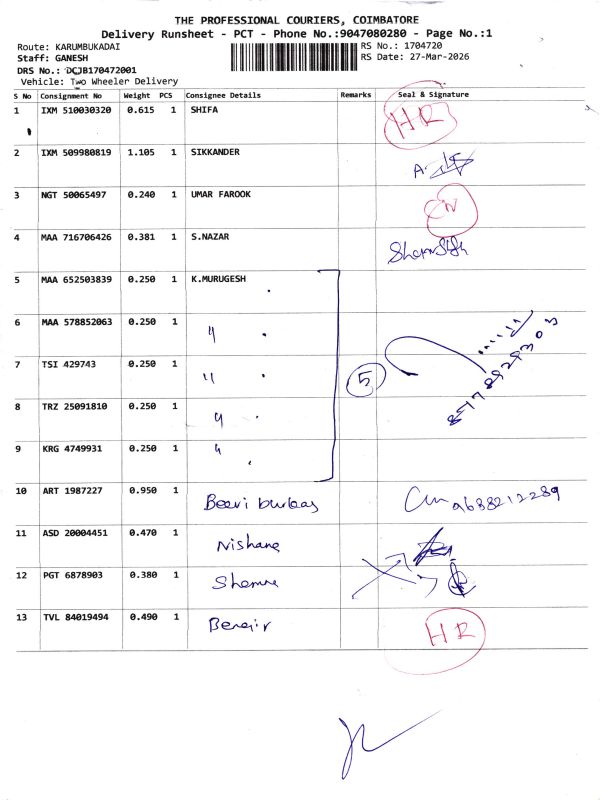 THE PROFESSIONAL COURIERS, COIMBATORE
Delivery Runsheet - PCT - Phone No.:9047080280 - Page No.:1
Route: KARUMBUKADAI RS No.: 1704720
Staff: GANESH RS Date: 27-Mar-2026
DRS No.: DCJB170472001
Vehicle: Two Wheeler Delivery
S No Consignment No Weight PCS Consignee Details Remarks Seal & Signature
1 IXM 510030320 0.615 1 SHIFA HR
2 IXM 509980819 1.105 1 SIKKANDER
3 NGT 50065497 0.240 1 UMAR FAROOK
4 MAA 716706426 0.381 1 S.NAZAR
5 MAA 652503839 0.250 1 K.MURUGESH
6 MAA 578852063 0.250 1 "
7 TSI 429743 0.250 1 " 5
8 TRZ 25091810 0.250 1 "
9 KRG 4749931 0.250 1 "
10 ART 1987227 0.950 1 Beevi 9688212289
11 ASD 20004451 0.470 1 Nishane
12 PGT 6878903 0.380 1
13 TVL 84019494 0.490 1 HR